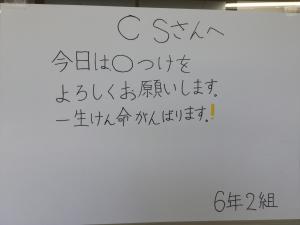 CSさんへ
今日は〇つけを
よろしくお願いします.
一生けん命がんばります!
6年2組